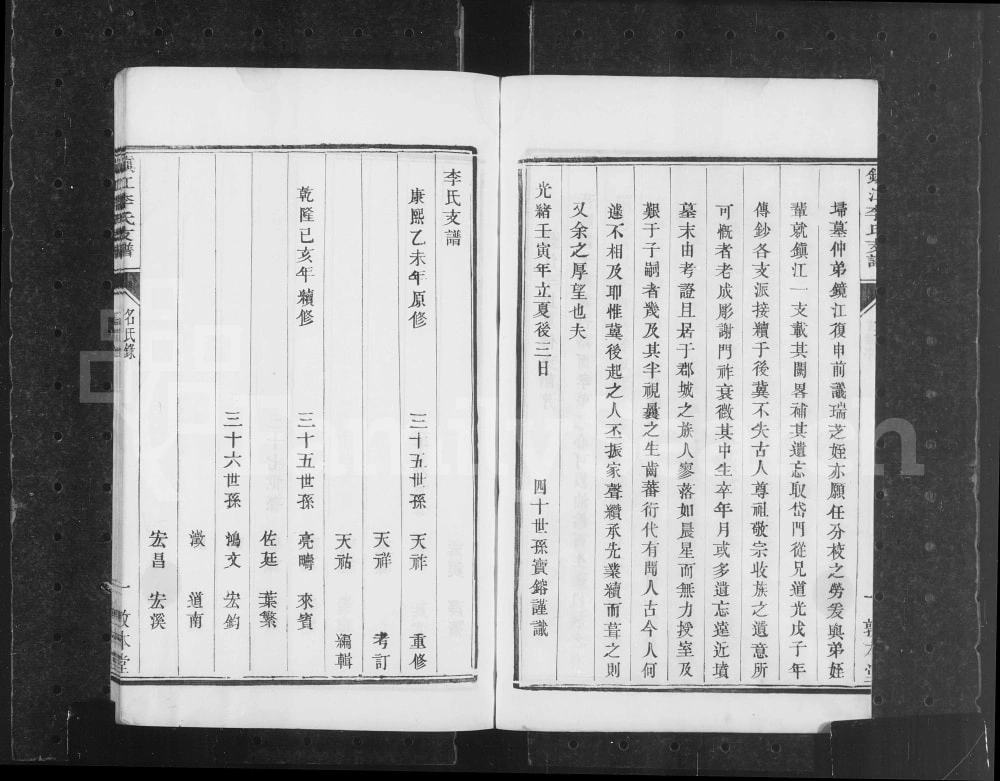 鎮江李氏支譜
掃墓仲弟鏡江復申前議瑞芝姪亦願任分校之勞爰與弟姪
輩就鎮江一支載其闕畧補其遺忘取岱門從兄道光戊子年
傳鈔各支派接續于後冀不失古人尊祖敬宗收族之遺意所
可慨者老成彫謝門祚衰微其中生卒年月或多遺忘遠近墳
墓末由考證且居于郡城之族人寥落如晨星而無力授室及
艱于子嗣者幾及其半視曩之生齒蕃衍代有聞人古今人何
遽不相及耶惟冀後起之人丕振家聲纘承先業續而葺之則
又余之厚望也夫
光緒壬寅年立夏後三日 四十世孫寶鎔謹識
一 敦本堂
李氏支譜
康熙乙未年原修 三十五世孫 天祚 重修
天祥 考訂
天祜 編輯
乾隆己亥年續修 三十五世孫 亮疇 來賓
佐廷 葉繁
三十六世孫 鴻文 宏鈞
澂 道南
宏昌 宏溪
鎮江李氏支譜
名氏錄
一 敦本堂